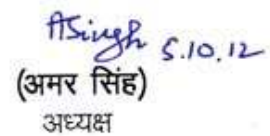 ASingh 5.10.12
(अमर सिंह)
अध्यक्ष